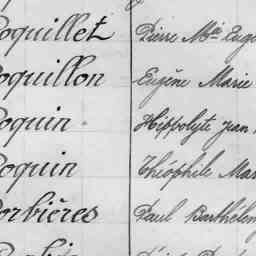 oquillet Pierre Mie Eugè
oquillon Eugène Marie
oquin Hippolyte Jean
oquin Théophile Mar
orbières Paul Barthélemy